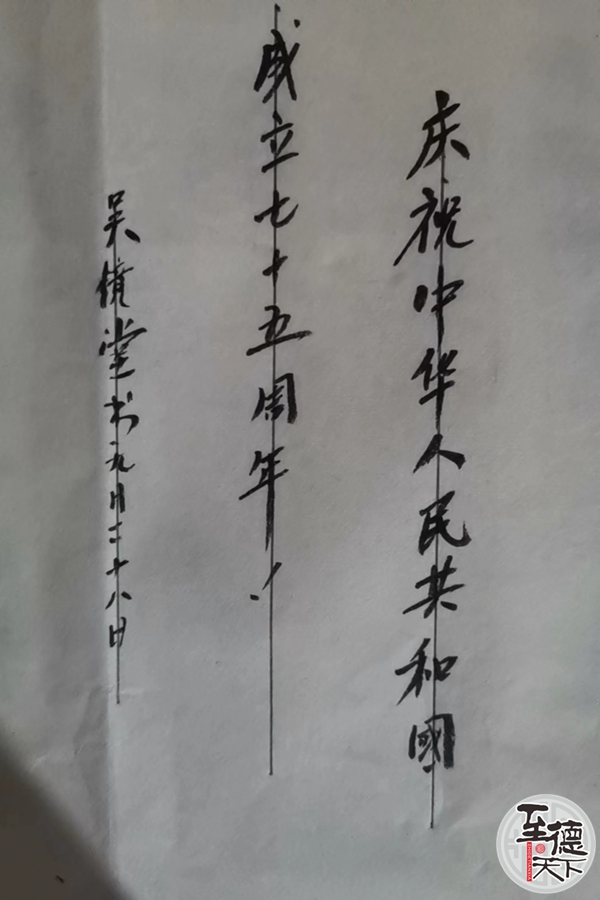 庆祝中华人民共和國
成立七十五周年！
吴镜堂书九月二十八日
至德天下